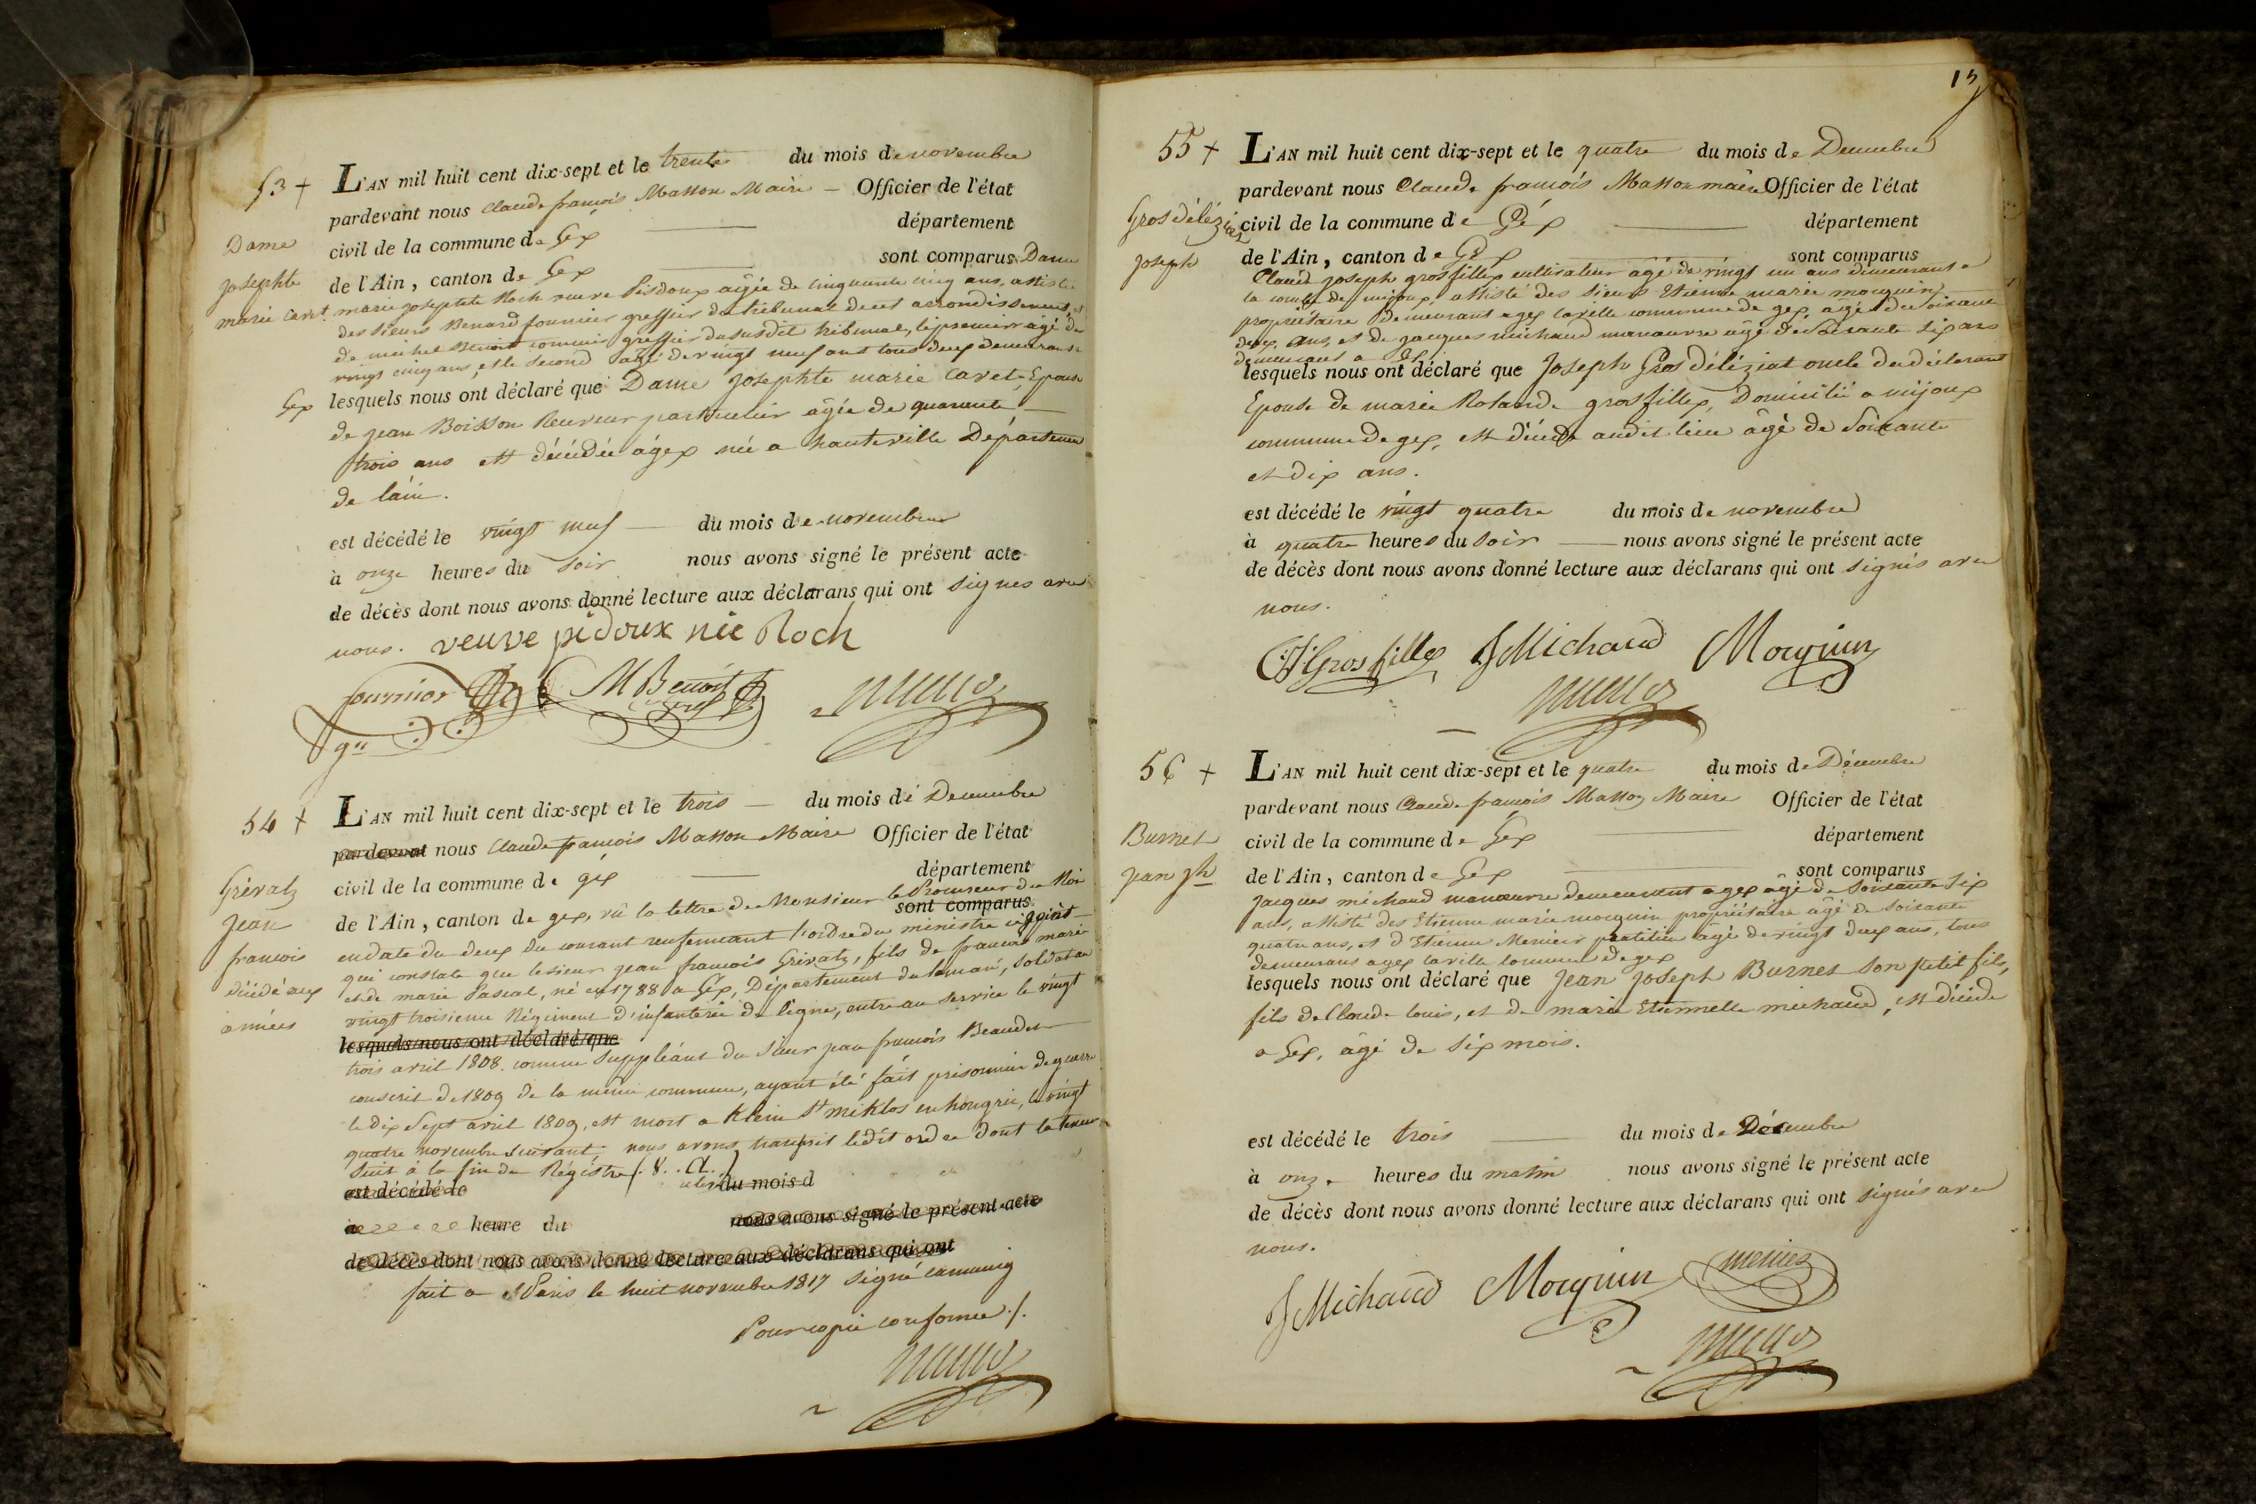 53 +
L'AN mil huit cent dix-sept et le trente du mois de novembre
pardevant nous Claude françois Masson Maire Officier de l'état
Dame
civil de la commune de Gex département
Josephte
de l'Ain, canton de Gex sont comparus Dame
marie Caret.
marie Josephte Roch veuve Pisdoux âgée de cinquante cinq ans, assistée
des sieurs Benard fournier greffier du tribunal de cet arrondissement, et
de michel Benoit commis greffier du susdit tribunal, le premier âgé de
vingt cinq ans, et le second âgé de vingt neuf ans tous deux demeurans
Gex
lesquels nous ont déclaré que Dame Josephte marie Caret, Epouse
de jean Boisson Receveur particulier âgée de quarante
trois ans est décédée à gex née a hauteville Département
de lain.
est décédé le vingt neuf du mois de novembre
à onze heures du soir nous avons signé le présent acte
de décès dont nous avons donné lecture aux déclarans qui ont signés avec
nous. veuve pidoux née Roch
fournier MBenoit
ger
54 +
L'AN mil huit cent dix-sept et le trois du mois de Decembre
pardevant nous Claude françois Masson Maire Officier de l'état
Grivatz
civil de la commune de gex département
Jean
de l'Ain, canton de gex, vû la lettre de Monsieur le Procureur du Roi
sont comparus
francois
en date du deux du courant renfermant l'ordre du ministre
décédé aux
qui constate que le sieur jean françois Grivatz, fils de francois marie
armées
et de marie Pascal, né en 1788 a Gex, Département du leman, soldat au
vingt troisieme Régiment d'infanterie de ligne, entré au service le vingt
lesquels nous ont déclaré que
trois avril 1808. comme suppléant du sieur jean françois Beaudet
conscrit de 1809 de la même commune, ayant été fait prisonnier de guerre
le dix Sept avril 1809, est mort a Klein St miklos en hongrie, le vingt
quatre novembre suivant, nous avons transcrit ledit ordre dont la teneur
suit à la fin du Régistre
est décédé le du mois d
à heure du nous avons signé le présent acte
de décès dont nous avons donné lecture aux déclarans qui ont
fait a Paris le huit novembre 1817 signé
Pour copie conforme ./.
55 +
L'AN mil huit cent dix-sept et le quatre du mois de Decembre
pardevant nous Claude françois Masson maire Officier de l'état
Gros déléziat
civil de la commune de Gex département
Joseph
de l'Ain, canton de Gex sont comparus
Claude Joseph grosfillex cultivateur âgé de vingt un ans demeurant a
la combe de mijoux, assisté des sieurs Etienne marie morquin
propriétaire demeurant a gex la ville commune de gex, âgé de soixante
deux ans, et de jacques michaud manœuvre âgé de soixante six ans
demeurans a Gex
lesquels nous ont déclaré que Joseph Gros déléziat oncle du déclarant
Epouse de marie Rolande grosfillex, Domicilié a mijoux
commune de gex, est décédé audit lieu âgé de Soixante
et dix ans.
est décédé le vingt quatre du mois de novembre
à quatre heures du soir nous avons signé le présent acte
de décès dont nous avons donné lecture aux déclarans qui ont signés avec
nous.
CJGrosfillex JMichaud Morquin
56 +
L'AN mil huit cent dix-sept et le quatre du mois de Décembre
pardevant nous Claude françois Masson Maire Officier de l'état
Burnet
civil de la commune de Gex département
jean jh
de l'Ain, canton de Gex sont comparus
jacques michaud manœuvre demeurant a gex âgé de soixante six
ans, assisté des Etienne marie morquin propriétaire âgé de soixante
quatre ans, et d'Etienne Menier âgé de vingt deux ans, tous
demeurans a gex la ville commune de gex
lesquels nous ont déclaré que Jean Joseph Burnet son petit fils,
fils de Claude louis, et de marie Etiennette michaud, est décédé
a Gex, âgé de six mois.
est décédé le trois du mois de Décembre
à onze heures du matin nous avons signé le présent acte
de décès dont nous avons donné lecture aux déclarans qui ont signés avec
nous.
JMichaud Morquin menier